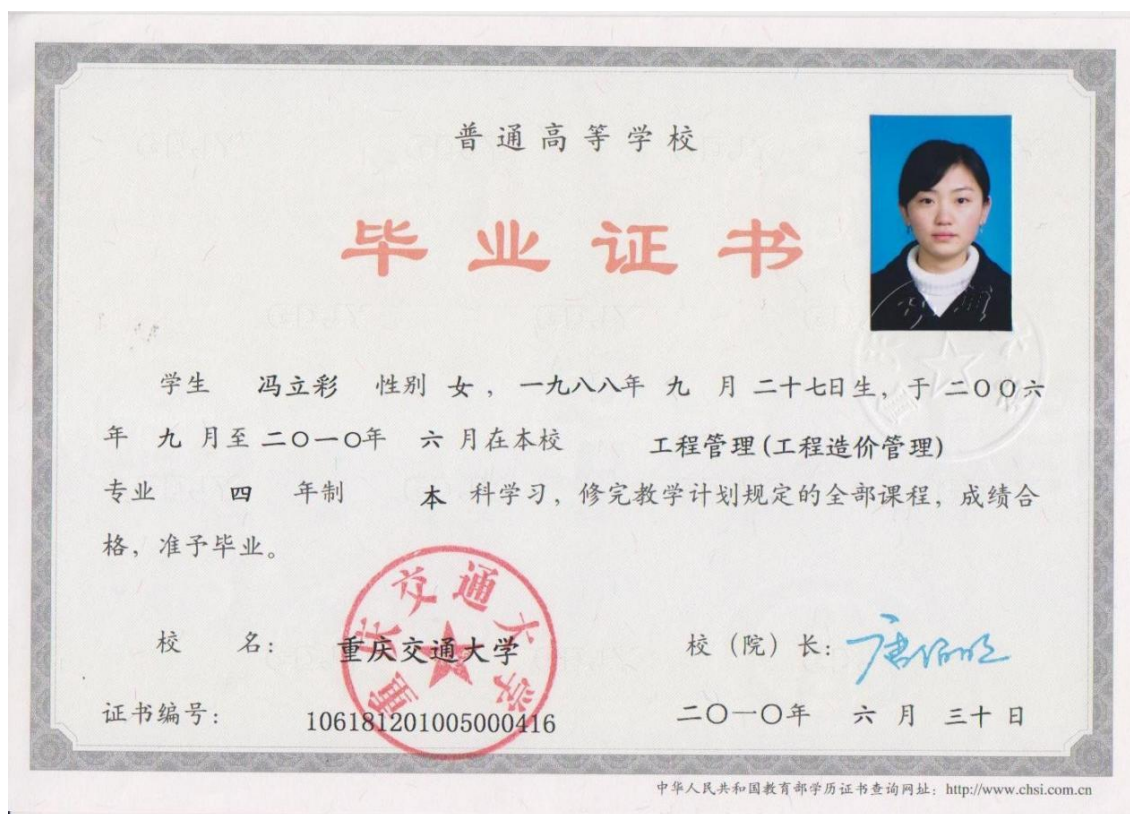 普通高等学校
毕业证书
学生 冯立彩 性别 女，一九八八年 九 月 二十七日生，于 二〇〇六
年 九 月至 二〇一〇年 六 月在本校 工程管理(工程造价管理)
专业 四 年制 本 科学习，修完教学计划规定的全部课程，成绩合
格，准予毕业。
重庆交通大学
校 名： 重庆交通大学 校（院）长：
证书编号： 106181201005000416 二〇一〇年 六 月 三十 日
中华人民共和国教育部学历证书查询网址：http://www.chsi.com.cn